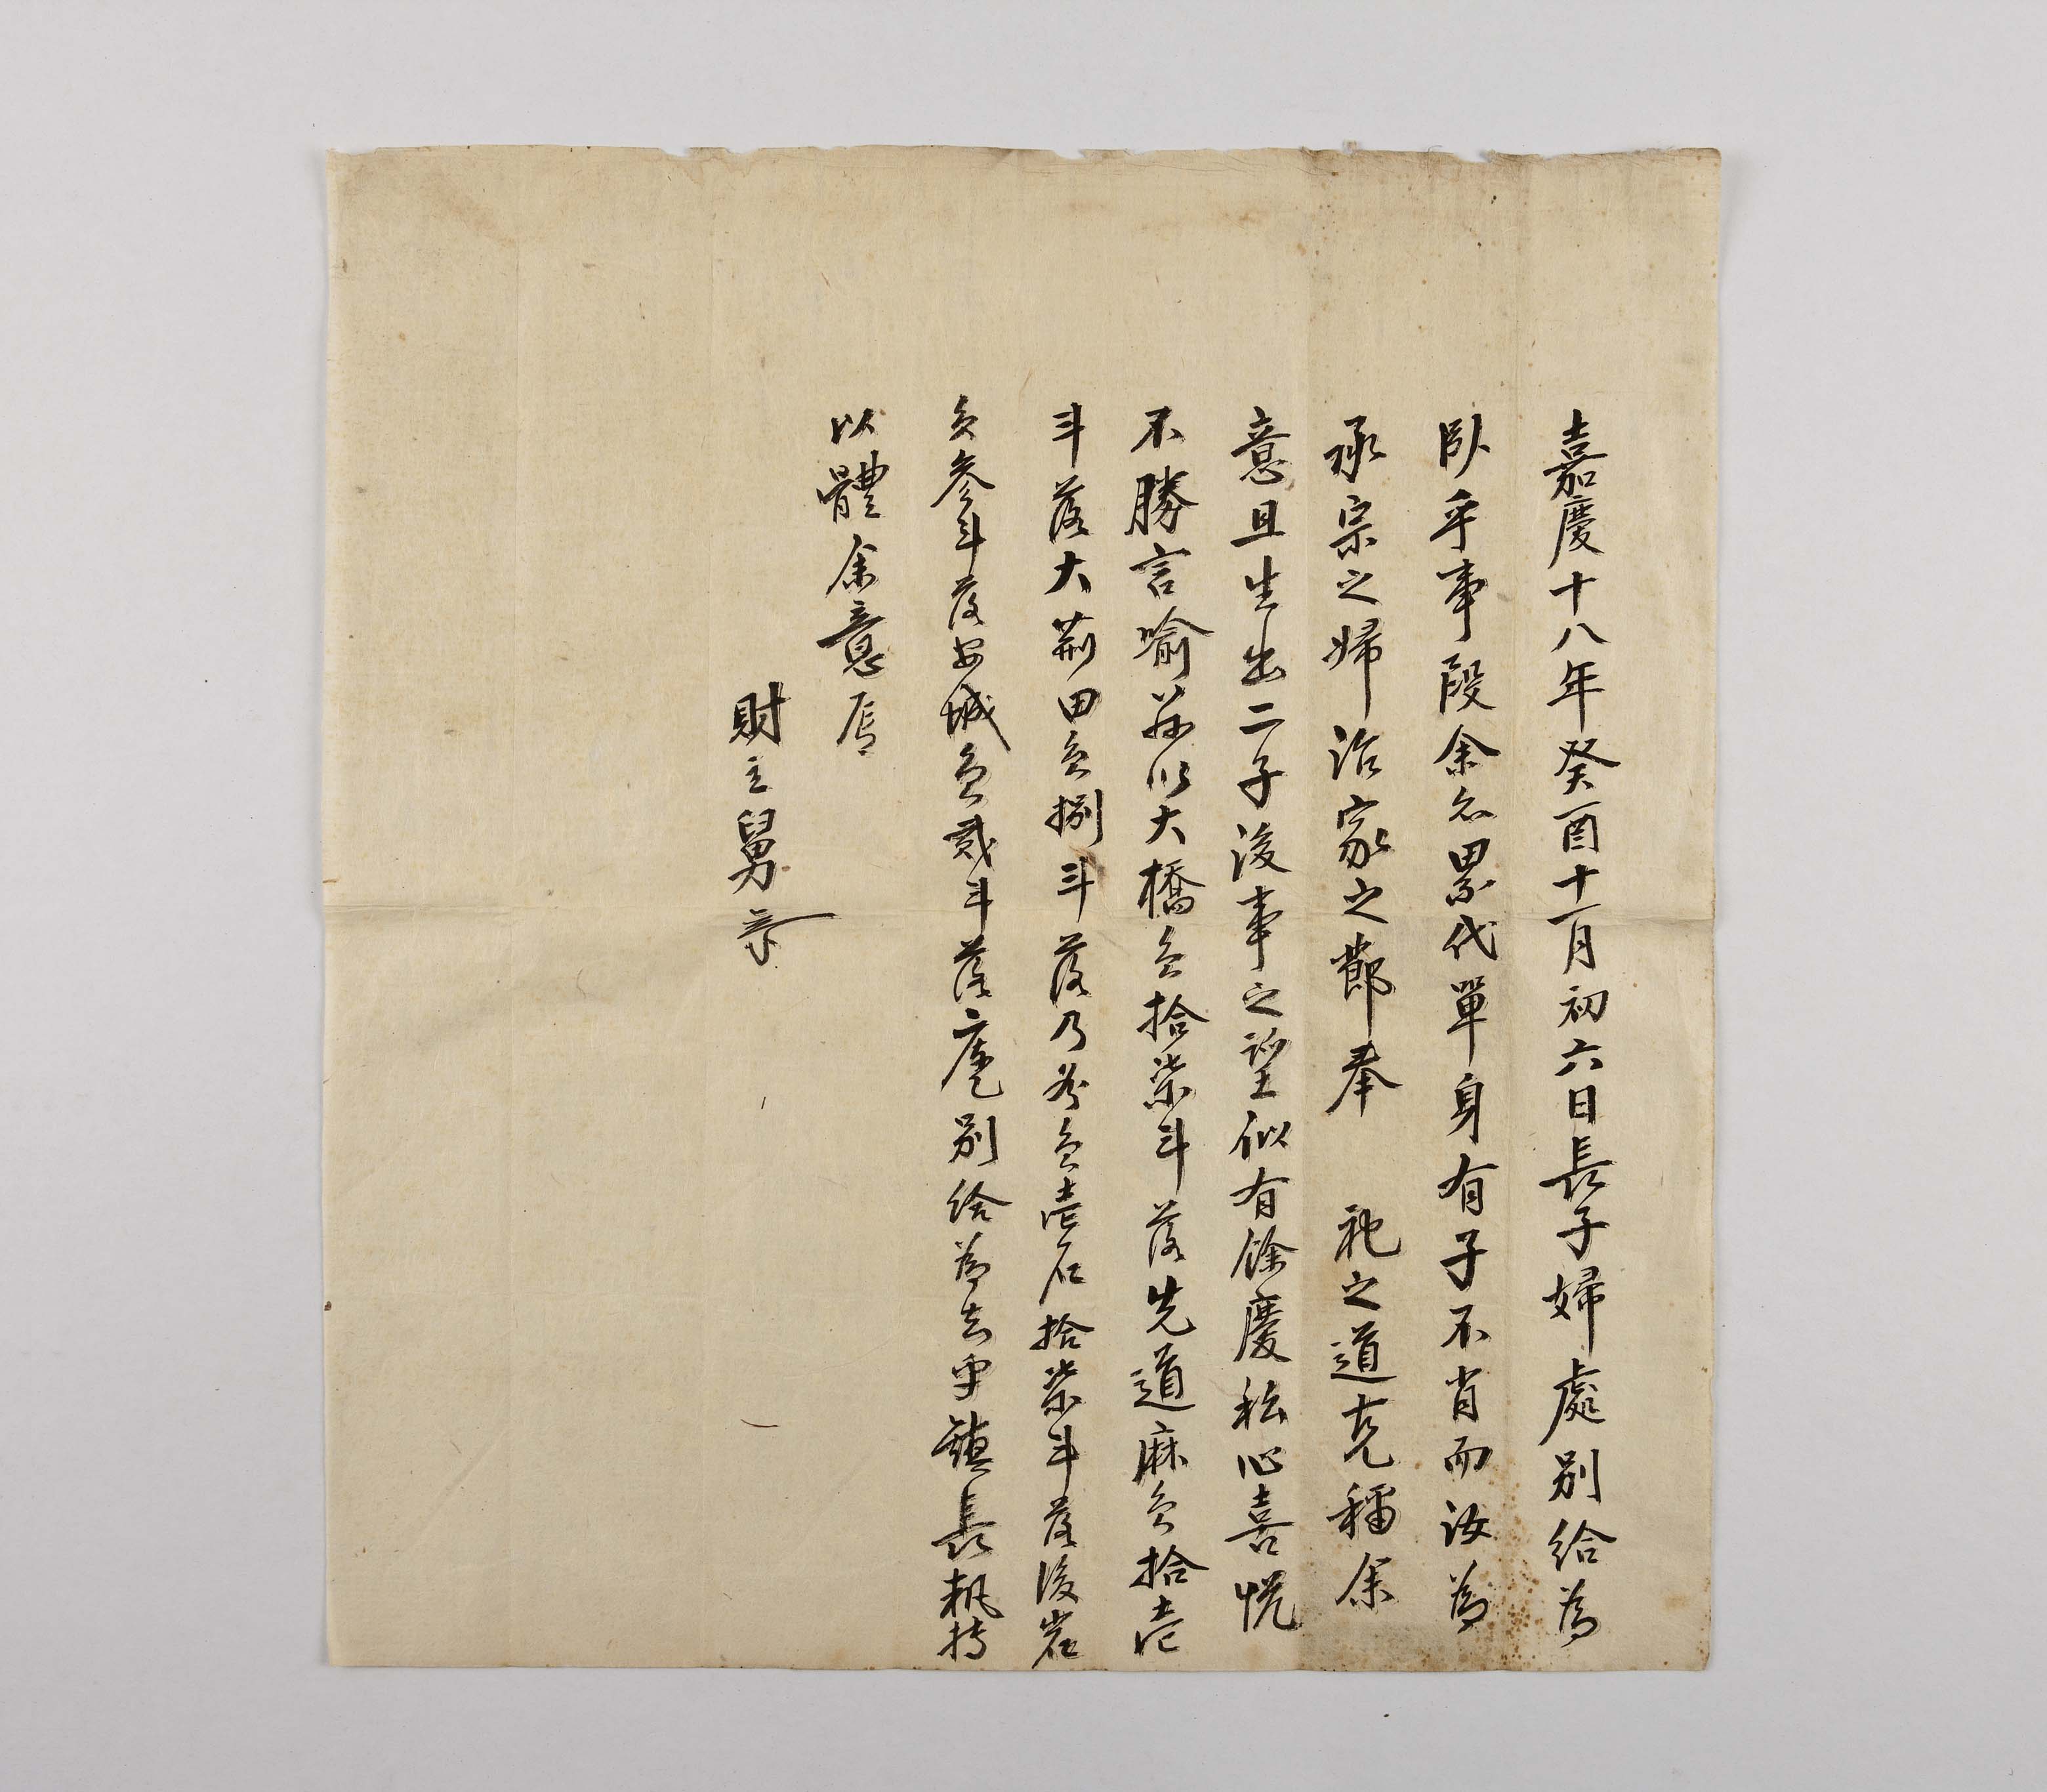 嘉慶十八年癸酉十一月初六日長子婦處別給爲
臥乎事段余以累代單身有子不肖而汝爲
承宗之婦治家之節奉 祀之道克稱余
意且生出二子後事之望似有餘慶私心喜悅
不勝言喻玆以大橋畓拾柒斗落先道麻畓拾壹
斗落大荊田畓捌斗落乃畓壹石拾柒斗落後岩
畓參斗落安城畓貳斗落庫乙別給爲去乎鎭長執持
以體余意焉
財主舅